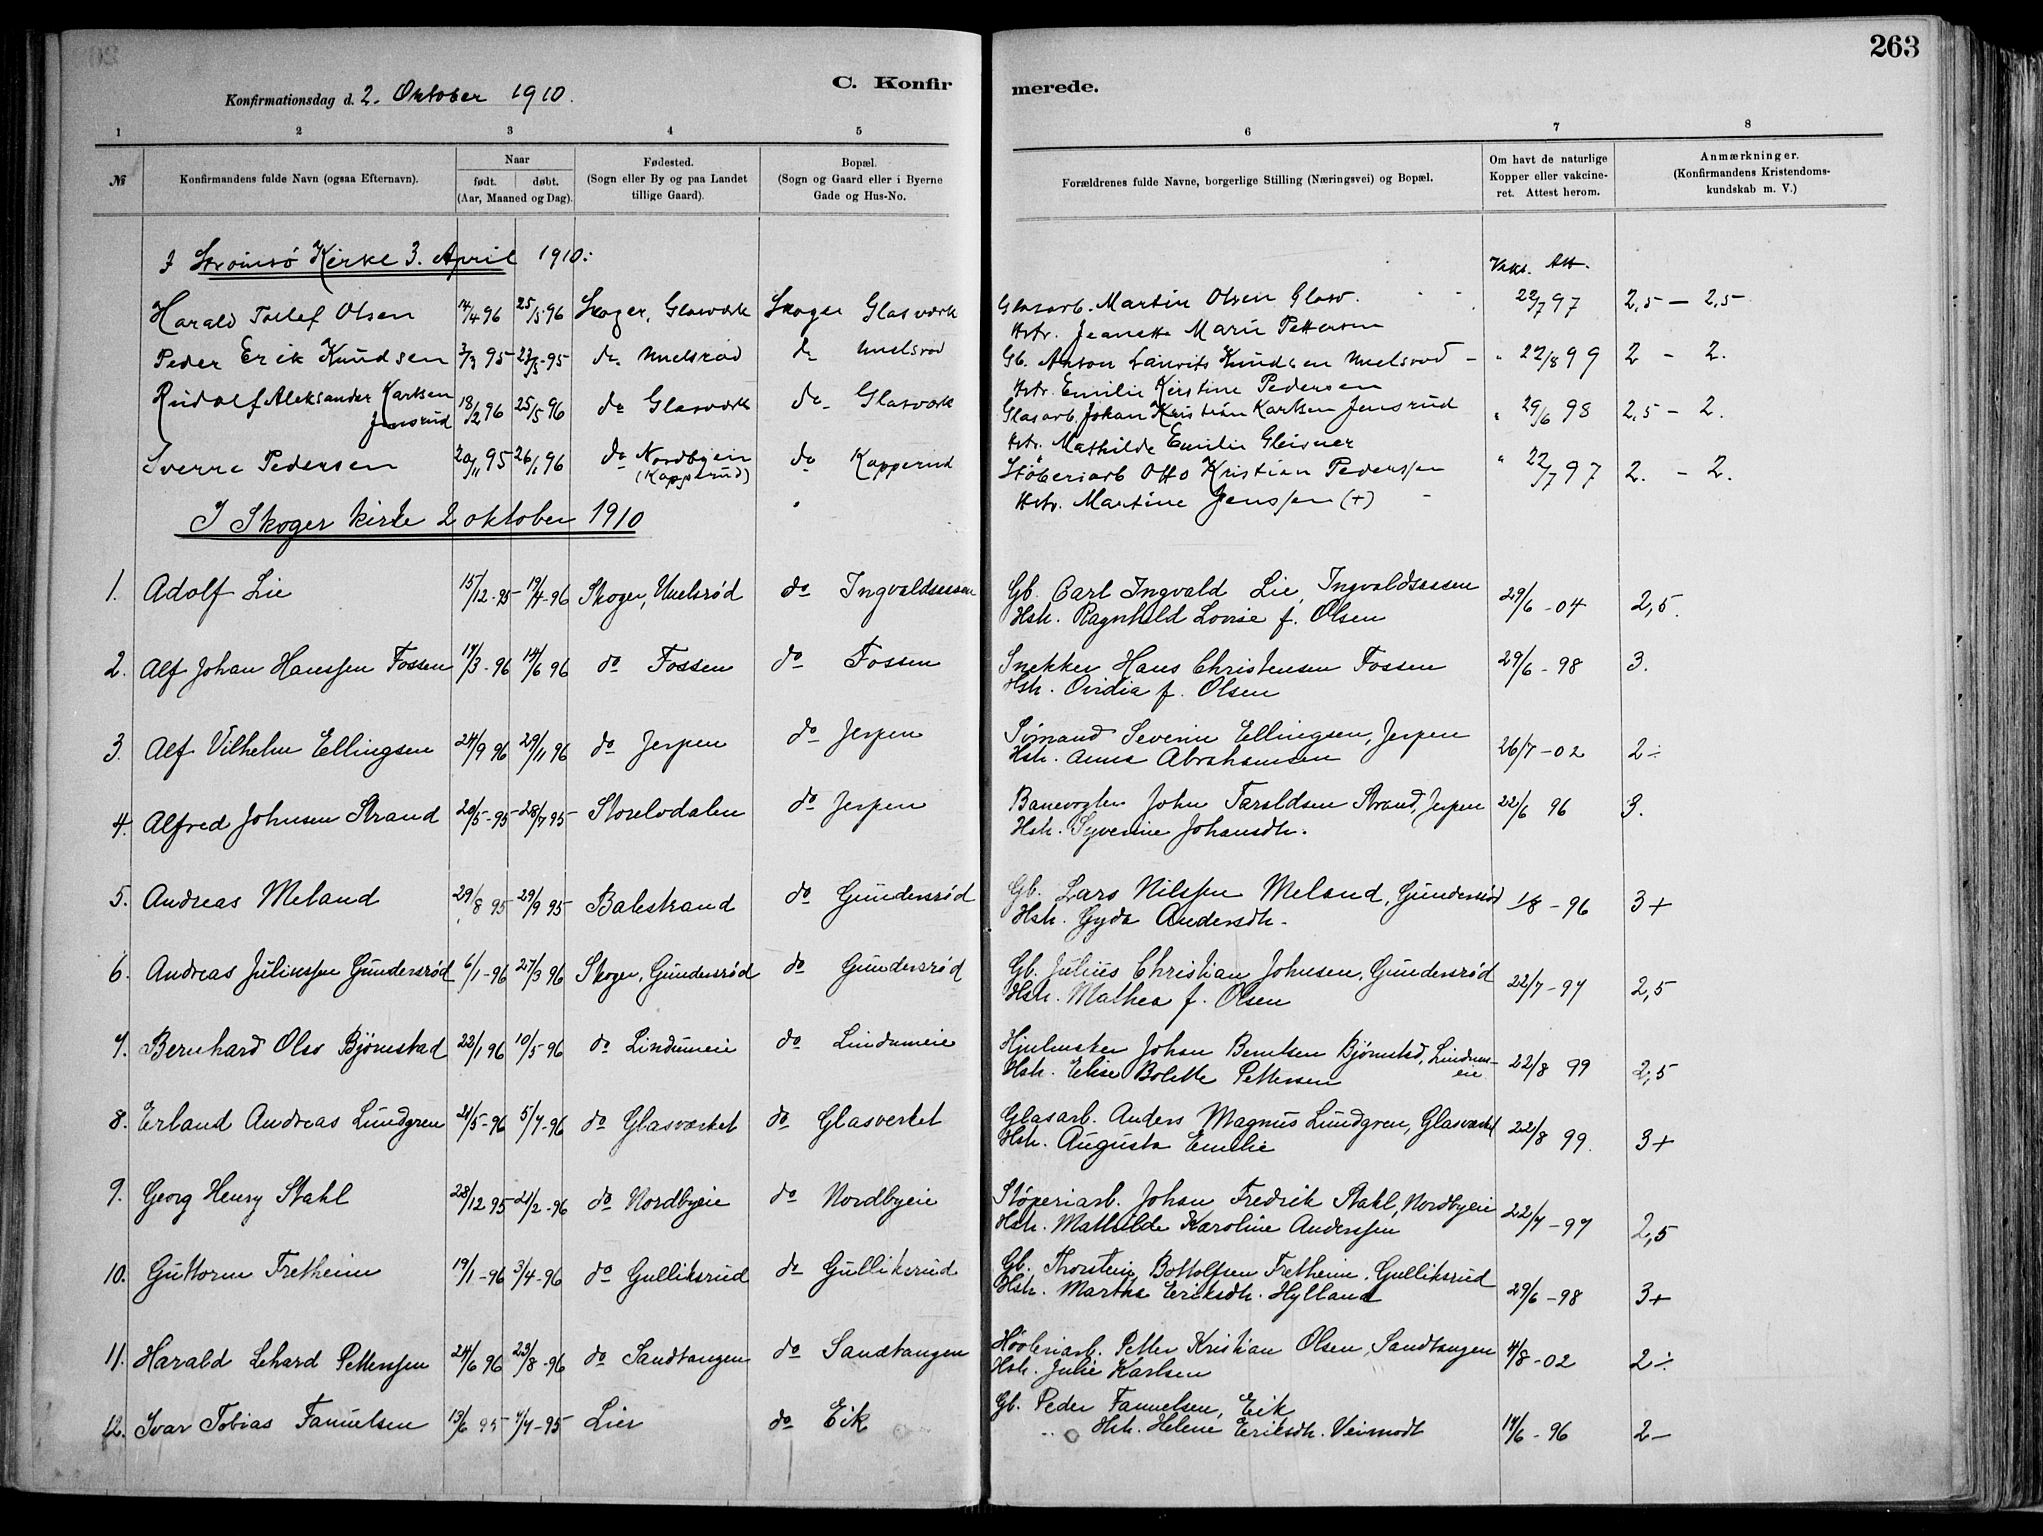 263
C. Konfirmerede.
Konfirmationsdag d. 2. Oktober 1910.
1 2 3 4 5 6 7 8
№ Konfirmandens fulde Navn (ogsaa Efternavn).
Naar
født. døbt.
(Aar, Maaned og Dag).
Fødested.
(Sogn eller By og paa Landet
tillige Gaard).
Bopæl.
(Sogn og Gaard eller i Byerne
Gade og Hus-No.
Forældrenes fulde Navne, borgerlige Stilling (Næringsvei) og Bopæl.
Om havt de naturlige
Kopper eller vakcine-
ret. Attest herom.
Anmærkninger.
(Konfirmandens Kristendoms-
kundskab m. V.)
I Strømsø Kirke 3. April 1910:
Vaks. Att.
Harald Tollef Olsen 14/4 96 25/5 96 Skoger, Glasværk Skoger Glasværk Glasarb. Martin Olsen Glasv. 22/7 97 2,5 – 2,5
Hstr. Jeanette Marie Pettersen
Peder Erik Knudsen 3/3 95 23/5 95 do Unelsrød do Unelsrød Gb. Anton Lauritz Knudsen Unelsrød " 22/8 99 2 – 2.
Hstr. Emilie Kirstine Pedersen
Rudolf Aleksander Karlsen
Jensrud 18/2 96 25/5 96 do Glasværk do Glasværk Glasarb. Johan Kristian Karlsen Jensrud " 29/6 98 2,5 – 2.
Hstr. Mathilde Emilie Gleisner
Sverre Pedersen 20/11 95 26/1 96 do Nordbyeie do Kopperud Støberiarb Otto Kristian Pederssen " 22/7 97 2. – 2.
(Kopperud) Hstr. Martine Jenssen (+)
I Skoger kirke 2 oktober 1910
1. Adolf Lie 15/12-95 19/4-96 Skoger, Unelsrød do Ingvaldsessen Gb. Carl Ingvald Lie, Ingvaldsessen 29/6 -04 2,5.
Hstr. Ragnhild Lovise f. Olsen
2. Alf Johan Hanssen Fossen 19/3-96 14/6 96 do Fossen do Fossen Snekker Hans Christensen Fossen 29/6-98 3.
Hstr. Ovidia f. Olsen
3. Alf Vilhelm Ellingsen 24/9 96 29/11 96 do Jerpen do Jerpen Sømand Severin Ellingsen, Jerpen 26/7-02 2÷
Hstr. Anna Abrahamsen
4. Alfred Johnsen Strand 20/5-95 28/7 95 Storelvdalen do Jerpen Banevogter John Taraldsen Strand, Jerpen 22/6 96 3.
Hstr. Syverine Johansdtr.
5. Andreas Meland 29/8 95 29/9 95 Balestrand do Gundersrød Gb. Lars Nilssen Meland, Gundersrød 1/8-96 3+
Hstr. Gyda Andersdtr.
6. Andreas Juliussen Gundersrød 6/1-96 27/3 96 Skoger, Gundersrød do Gundersrød Gb. Julius Christian Johnsen, Gundersrød 22/7-97 2,5
Hstr. Mathea f. Olsen
7. Bernhard Olav Bjørnstad 22/1 96 10/5-96 do Lindumeie do Lindumeie Hjulmaker Johan Berntsen Bjørnstad, Lindum-
eie 22/8 99 2,5
Hstr. Elise Bolette Pettersen
8. Erland Andreas Lundgren 21/5-96 5/7-96 do Glasværket do Glasverket Glasarb. Anders Magnus Lundgren, Glasværket 22/8 99. 3+
Hstr. Augusta Emelie
9. Georg Henry Stahl 28/12 95 21/2-96 do Nordbyeie do Nordbyeie Støperiarb. Johan Fredrik Stahl, Nordbyeie 22/7-97 2,5
Hstr. Mathilde Karoline Anderssen
10. Guttorm Fretheim 19/1-96 3/4-96 do Gulliksrud do Gulliksrud Gb. Thorstein Bottolfsen Fretheim, Gulliksrud 29/6-98 3+
Hstr. Martha Eriksdtr. Hylland
11. Harald Lehard Petterssen 24/6 96 23/8-96 do Sandtangen do Sandtangen Høvleriarb. Petter Kristian Olsen, Sandtangen 4/8-02 2÷
Hstr. Julie Karlsen
12. Ivar Tobias Fanuelsen 13/6 95 7/7-95 Lier do Eik Gb. Peder Fanuelsen, Eik
Hstr. Helene Eriksdtr. Veimodt 17/6-96 2–